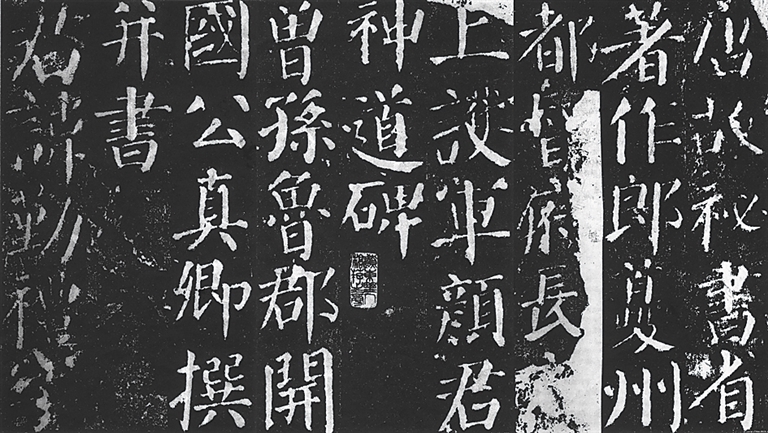 唐故秘書省
著作郎夔州
都督府長史
上護軍顏君
神道碑
曾孫魯郡開
國公真卿撰
并書
君諱勤禮字